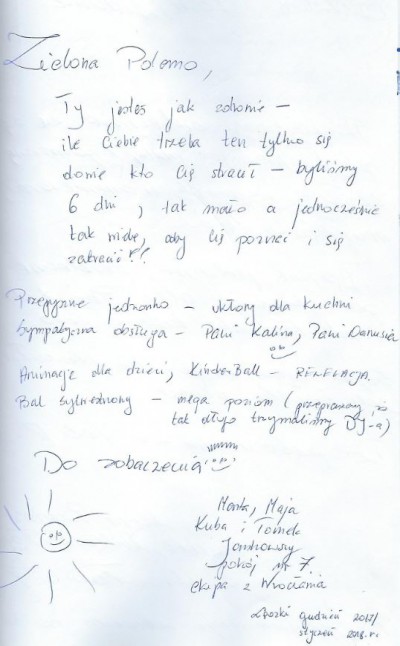 Zielona Polano,
Ty jesteś jak zdrowie –
ile Ciebie trzeba ten tylko się
dowie kto Cię stracił – byliśmy
6 dni, tak mało a jednocześnie
tak wiele, aby Cię poznać i się
zakochać!!
Przepyszne jedzonko – ukłony dla kuchni
Sympatyczna obsługa – Pani Kalina, Pani Danusia
Animacje dla dzieci, KinderBall – REWELACJA.
Bal sylwestrowy – mega poziom (przepraszamy, że
tak długo trzymaliśmy DJ-a)
Do zobaczenia
Maja
Kuba i Tomek
pokój nr 7.
ekipa z Wrocławia
grudzień 2017/
styczeń 2018 r.